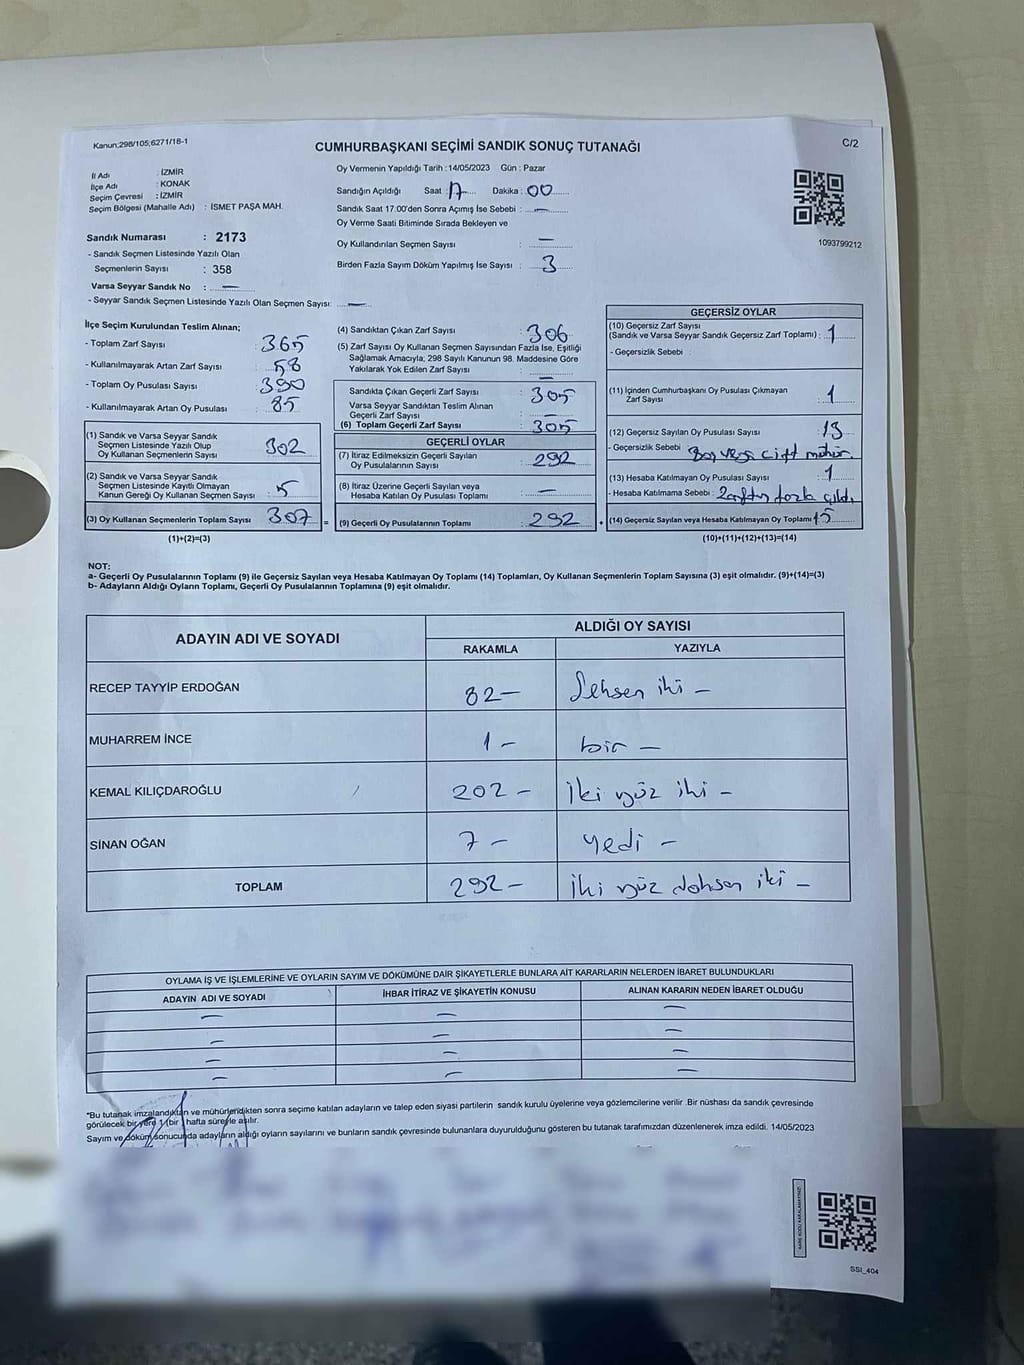 Kanun;298/105;6271/18-1
CUMHURBAŞKANI SEÇİMİ SANDIK SONUÇ TUTANAĞI
C/2
İl Adı : İZMİR
İlçe Adı : KONAK
Seçim Çevresi : İZMİR
Seçim Bölgesi (Mahalle Adı) : İSMET PAŞA MAH.
Sandık Numarası : 2173
- Sandık Seçmen Listesinde Yazılı Olan
Seçmenlerin Sayısı : 358
Varsa Seyyar Sandık No : —
- Seyyar Sandık Seçmen Listesinde Yazılı Olan Seçmen Sayısı: —
Oy Vermenin Yapıldığı Tarih : 14/05/2023 Gün : Pazar
Sandığın Açıldığı Saat : 17 Dakika : 00
Sandık Saat 17.00'den Sonra Açımış İse Sebebi : —
Oy Verme Saati Bitiminde Sırada Bekleyen ve
Oy Kullandırılan Seçmen Sayısı : —
Birden Fazla Sayım Döküm Yapılmış İse Sayısı : 3
1093799212
İlçe Seçim Kurulundan Teslim Alınan;
- Toplam Zarf Sayısı : 365
- Kullanılmayarak Artan Zarf Sayısı : 58
- Toplam Oy Pusulası Sayısı : 390
- Kullanılmayarak Artan Oy Pusulası : 85
(1) Sandık ve Varsa Seyyar Sandık
Seçmen Listesinde Yazılı Olup
Oy Kullanan Seçmenlerin Sayısı : 302
(2) Sandık ve Varsa Seyyar Sandık
Seçmen Listesinde Kayıtlı Olmayan
Kanun Gereği Oy Kullanan Seçmen Sayısı : 5
(3) Oy Kullanan Seçmenlerin Toplam Sayısı : 307
(1)+(2)=(3)
(4) Sandıktan Çıkan Zarf Sayısı : 306
(5) Zarf Sayısı Oy Kullanan Seçmen Sayısından Fazla İse, Eşitliği
Sağlamak Amacıyla; 298 Sayılı Kanunun 98. Maddesine Göre
Yakılarak Yok Edilen Zarf Sayısı : —
Sandıkta Çıkan Geçerli Zarf Sayısı : 305
Varsa Seyyar Sandıktan Teslim Alınan
Geçerli Zarf Sayısı : —
(6) Toplam Geçerli Zarf Sayısı : 305
GEÇERLİ OYLAR
(7) İtiraz Edilmeksizin Geçerli Sayılan
Oy Pusulalarının Sayısı : 292
(8) İtiraz Üzerine Geçerli Sayılan veya
Hesaba Katılan Oy Pusulası Toplamı : —
= (9) Geçerli Oy Pusulalarının Toplamı : 292
GEÇERSİZ OYLAR
(10) Geçersiz Zarf Sayısı
(Sandık ve Varsa Seyyar Sandık Geçersiz Zarf Toplamı) : 1
- Geçersizlik Sebebi :
(11) İçinden Cumhurbaşkanı Oy Pusulası Çıkmayan
Zarf Sayısı : 1
(12) Geçersiz Sayılan Oy Pusulası Sayısı : 13
- Geçersizlik Sebebi : Boş veya çift mühür.
(13) Hesaba Katılmayan Oy Pusulası Sayısı : 1
- Hesaba Katılmama Sebebi : Zarftan fazla çıktı.
+ (14) Geçersiz Sayılan veya Hesaba Katılmayan Oy Toplamı : 15
(10)+(11)+(12)+(13)=(14)
NOT:
a- Geçerli Oy Pusulalarının Toplamı (9) ile Geçersiz Sayılan veya Hesaba Katılmayan Oy Toplamı (14) Toplamları, Oy Kullanan Seçmenlerin Toplam Sayısına (3) eşit olmalıdır. (9)+(14)=(3)
b- Adayların Aldığı Oyların Toplamı, Geçerli Oy Pusulalarının Toplamına (9) eşit olmalıdır.
ADAYIN ADI VE SOYADI
ALDIĞI OY SAYISI
RAKAMLA YAZIYLA
RECEP TAYYİP ERDOĞAN 82— Sehsen iki —
MUHARREM İNCE 1— bir —
KEMAL KILIÇDAROĞLU 202— İki yüz iki —
SİNAN OĞAN 7— yedi —
TOPLAM 292— İki yüz dohsan iki —
OYLAMA İŞ VE İŞLEMLERİNE VE OYLARIN SAYIM VE DÖKÜMÜNE DAİR ŞİKAYETLERLE BUNLARA AİT KARARLARIN NELERDEN İBARET BULUNDUKLARI
ADAYIN ADI VE SOYADI İHBAR İTİRAZ VE ŞİKAYETİN KONUSU ALINAN KARARIN NEDEN İBARET OLDUĞU
— — —
— — —
— — —
— — —
*Bu tutanak imzalandıktan ve mühürlendikten sonra seçime katılan adayların ve talep eden siyasi partilerin sandık kurulu üyelerine veya gözlemcilerine verilir .Bir nüshası da sandık çevresinde
görülecek bir yere 1 (bir) hafta süreyle asılır.
Sayım ve döküm sonucunda adayların aldığı oyların sayılarını ve bunların sandık çevresinde bulunanlara duyurulduğunu gösteren bu tutanak tarafımızdan düzenlenerek imza edildi. 14/05/2023
KARE KODU KARALAMAYINIZ!
SSI_404